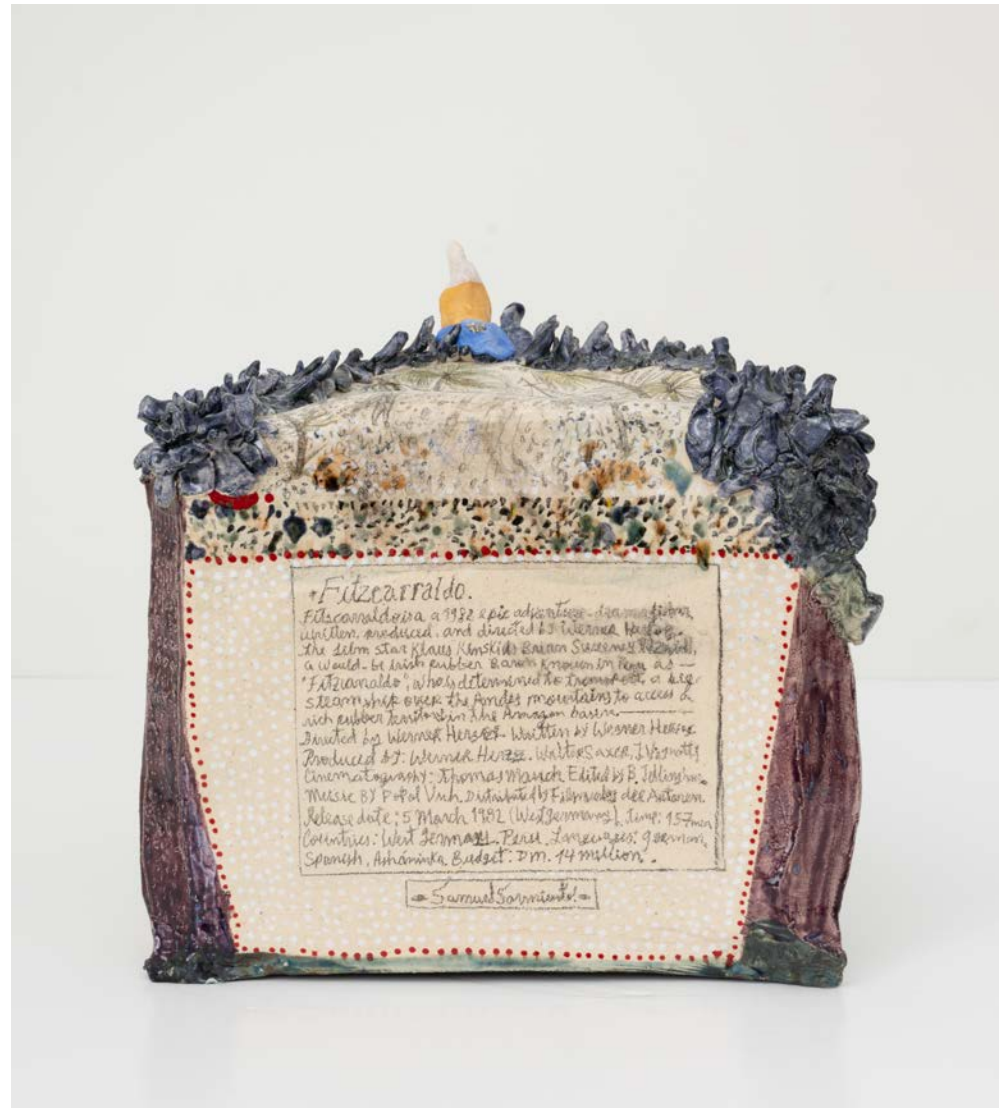 Fitzcarraldo.
Fitscarraldo is a 1982 epic adventure-drama
written, produced, and directed by Werner
the film star Klaus Kinski as Brian Sweeney
a would-be Irish rubber Baron known in Peru as —
who is determined to transport a big
steamship over the Andes mountains to access a
rich rubber territory in the Amazon basin.
Directed by Werner Written by Werner
Produced by: Werner
Cinematography: Thomas Mauch Edited by B.
Music BY Popol Vuh Distributed by
Release date: 5 March 1982 (West Germany). Time: 157 min
Countries: West Peru. Languages: german,
Spanish, Asháninka Budget: DM. 14 million.
Samuel Sarmiento.